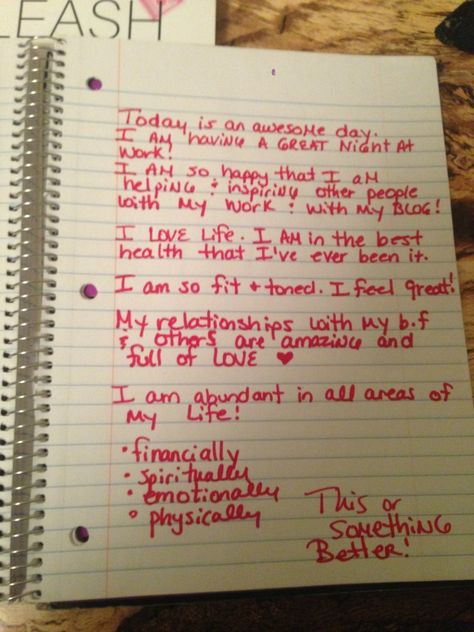 LEASH
Today is an awesome day.
I AM having A GREAT Night At
work!
I AM so happy that I am
helping & inspiring other people
with My work & with My BLOG!
I LOVE Life. I AM in the best
health that I've ever been it.
I am so fit & toned. I feel great!
My relationships with My b.f
& others are amazing and
full of LOVE ♥
I am abundant in all areas of
My Life!
• financially
• spiritually
• emotionally
• physically
This or
SOMETHING
Better!